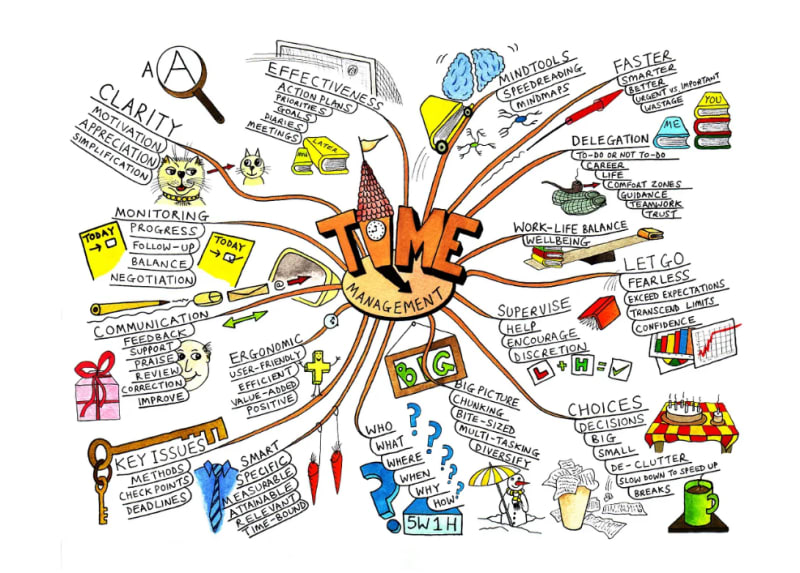 TIME
MANAGEMENT
A
A
CLARITY
MOTIVATION
APPRECIATION
SIMPLIFICATION
EFFECTIVENESS
ACTION PLANS
PRIORITIES
GOALS
DIARIES
MEETINGS
LATER
MINDTOOLS
SPEEDREADING
MINDMAPS
FASTER
SMARTER
BETTER
URGENT VS. IMPORTANT
WASTAGE
YOU
ME
DELEGATION
TO-DO OR NOT TO-DO
CAREER
LIFE
COMFORT ZONES
GUIDANCE
TEAMWORK
TRUST
WORK-LIFE BALANCE
WELLBEING
LET GO
FEARLESS
EXCEED EXPECTATIONS
TRANSCEND LIMITS
CONFIDENCE
SUPERVISE
HELP
ENCOURAGE
DISCRETION
L + H = ✓
CHOICES
DECISIONS
BIG
SMALL
DE-CLUTTER
SLOW DOWN TO SPEED UP
BREAKS
BIG
BIG PICTURE
CHUNKING
BITE-SIZED
MULTI-TASKING
DIVERSIFY
WHO
WHAT
WHERE
WHEN
WHY
HOW
? ? ? ? ? ?
5W1H
SMART
SPECIFIC
MEASURABLE
ATTAINABLE
RELEVANT
TIME-BOUND
KEY ISSUES
METHODS
CHECKPOINTS
DEADLINES
ERGONOMIC
USER-FRIENDLY
EFFICIENT
VALUE-ADDED
POSITIVE
COMMUNICATION
FEEDBACK
SUPPORT
PRAISE
REVIEW
CORRECTION
IMPROVE
@
MONITORING
PROGRESS
FOLLOW-UP
BALANCE
NEGOTIATION
TODAY
TODAY